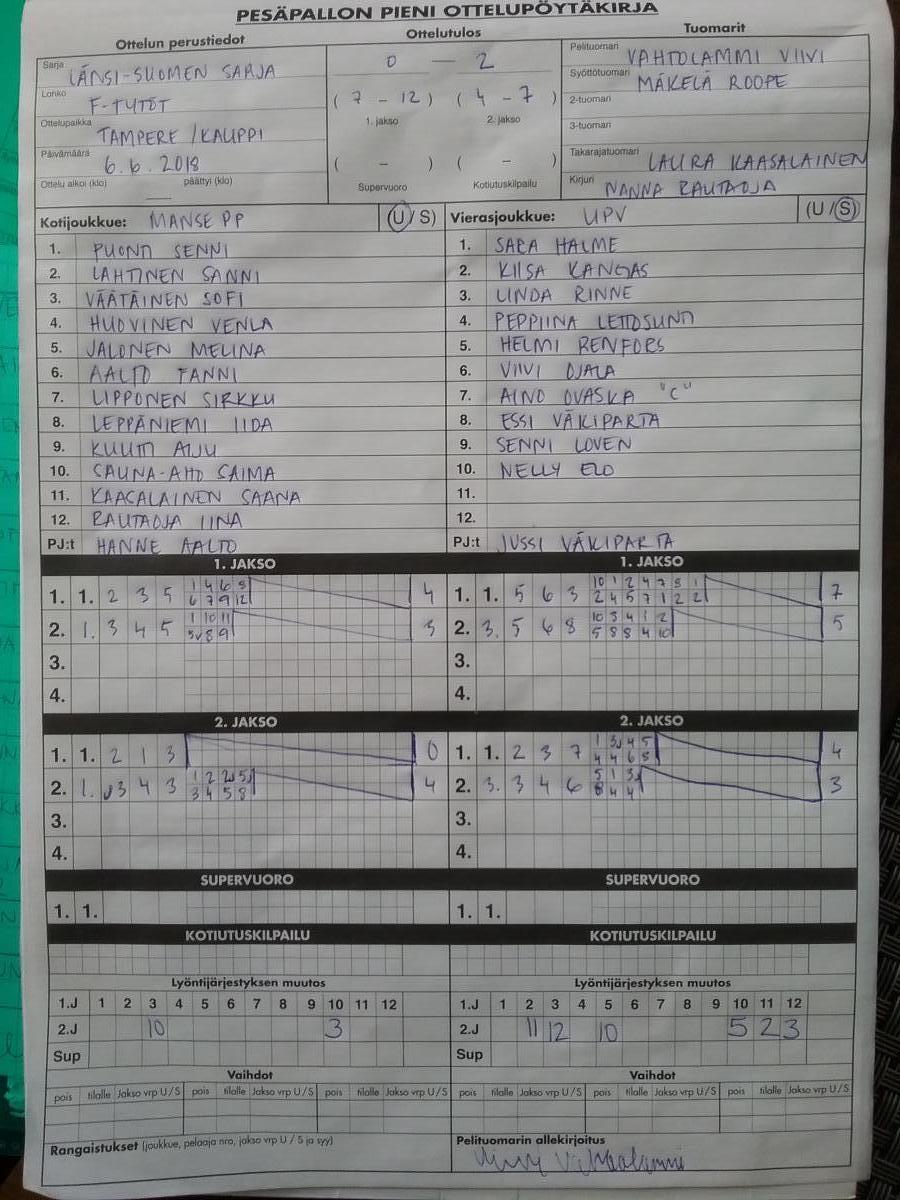 PESÄPALLON PIENI OTTELUPÖYTÄKIRJA
Ottelun perustiedot
Sarja LÄNSI-SUOMEN SARJA
Lohko F-TYTÖT
Ottelupaikka TAMPERE / KAUPPI
Päivämäärä 6.6.2018
Ottelu alkoi (klo) päättyi (klo)
Ottelutulos
0 – 2
( 7 – 12 ) ( 4 – 7 )
1. jakso 2. jakso
( – ) ( – )
Supervuoro Kotiutuskilpailu
Tuomarit
Pelituomari VAHTOLAMMI VIIVI
Syöttötuomari MÄKELÄ ROOPE
2-tuomari
3-tuomari
Takarajatuomari LAURA KAASALAINEN
Kirjuri NANNA RAUTAOJA
Kotijoukkue: MANSE PP (U / S)
1. PUONTI SENNI
2. LAHTINEN SANNI
3. VÄÄTÄINEN SOFI
4. HUOVINEN VENLA
5. JALONEN MELINA
6. AALTO FANNI
7. LIPPONEN SIRKKU
8. LEPPÄNIEMI IIDA
9. KUUTTI AIJU
10. SAUNA-AHO SAIMA
11. KAASALAINEN SAANA
12. RAUTAOJA IINA
PJ:t HANNE AALTO
Vierasjoukkue: UPV (U / S)
1. SARA HALME
2. KIISA KANGAS
3. LINDA RINNE
4. PEPPIINA
5. HELMI RENFORS
6. VIIVI OJALA
7. AINO OVASKA "C"
8. ESSI VÄKIPARTA
9. SENNI LOVEN
10. NELLY ELO
11.
12.
PJ:t JUSSI VÄKIPARTA
1. JAKSO
1. 1. 2 3 5 1 4 6 8 4
6 7 9 12
2. 1. 3 4 5 1 10 11 3
5 8 9
3.
4.
1. JAKSO
1. 1. 5 6 3 10 1 2 4 7 8 1 7
2 4 5 7 1 2 2
2. 3. 5 6 8 10 3 4 1 2 5
5 8 8 4 10
3.
4.
2. JAKSO
1. 1. 2 1 3 0
2. 1. 3 4 3 1 2 2 5 4
3 4 5 8
3.
4.
2. JAKSO
1. 1. 2 3 7 1 3 4 5 4
4 4 6 8
2. 3. 3 4 6 5 1 3 3
8 4 4
3.
4.
SUPERVUORO
1. 1.
SUPERVUORO
1. 1.
KOTIUTUSKILPAILU
KOTIUTUSKILPAILU
Lyöntijärjestyksen muutos
1.J 1 2 3 4 5 6 7 8 9 10 11 12
2.J 10 3
Sup
Lyöntijärjestyksen muutos
1.J 1 2 3 4 5 6 7 8 9 10 11 12
2.J 11 12 10 5 2 3
Sup
Vaihdot
pois tilalle Jakso vrp U / S pois tilalle Jakso vrp U / S pois tilalle Jakso vrp U / S
Vaihdot
pois tilalle Jakso vrp U / S pois tilalle Jakso vrp U / S pois tilalle Jakso vrp U / S
Rangaistukset (joukkue, pelaaja nro, jakso vrp U / S ja syy)
Pelituomarin allekirjoitus